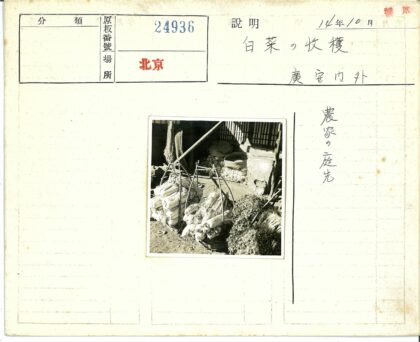 分類
原板番號
場所
24936
北京
説明
14年10月
白菜の收穫
廣安門内外
農家の庭先